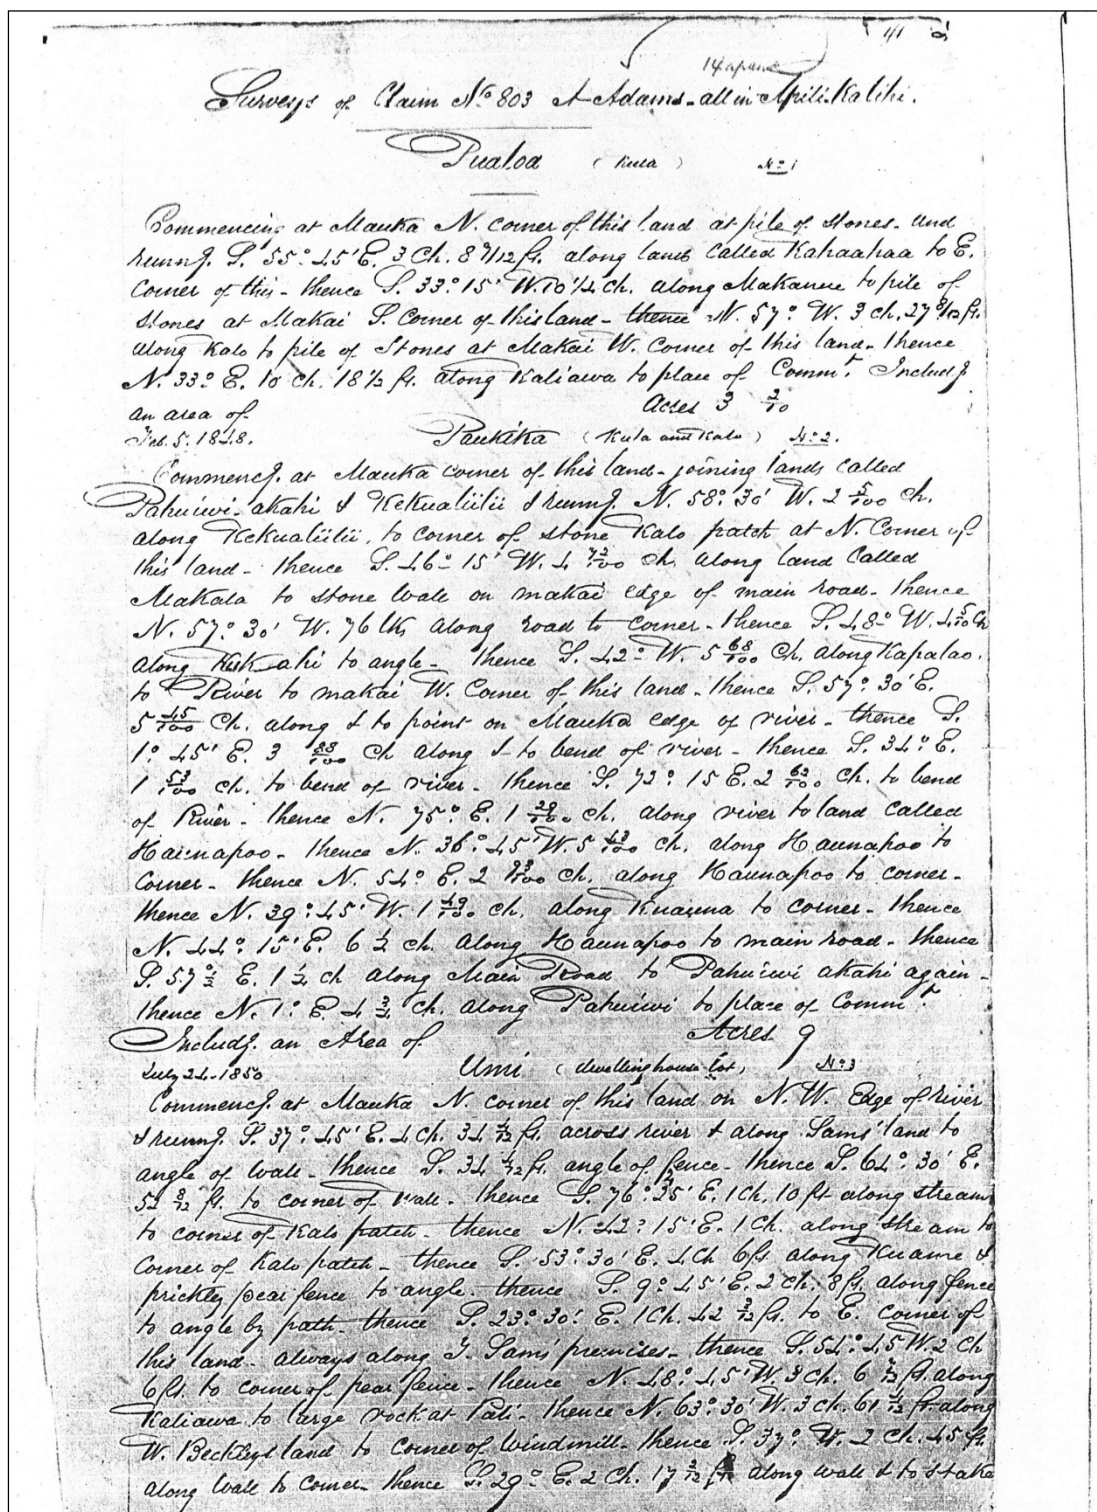 41
14 apana
Surveys of Claim No 803 A Adams - all in Apili Kalihi.
Pualoa (Kula) No 1
Commencing at Mauka N. corner of this land at pile of stones. And
runng. S. 55° 45' E. 3 Ch. 8 9/12 ft. along land called Kahaahaa to E.
corner of this - thence S. 33° 15' W. 10 1/4 ch. along Makanue to pile of
stones at Makai S. corner of this land - thence N. 57° W. 3 ch. 27 9/12 ft.
along Kalo to pile of Stones at Makai W. Corner of this land - thence
N. 33° E. 10 Ch. 18 1/2 ft. along Kaliawa to place of Commt. Includg
an area of Acres 3 2/10
Feb. 5. 1848. Paukika (Kula and Kalo) No 2.
Commencg. at Mauka corner of this land - joining lands called
Pahuiwi-akahi & Kekualiilii & runng. N. 58° 30' W. 2 5/100 ch.
along Kekualiilii, to corner of stone Kalo patch at N. Corner of
this land - thence S. 46° 15' W. 4 72/100 ch along land Called
Makala to stone wall on makai edge of main road - thence
N. 57° 30' W. 76 lks along road to corner - thence S. 48° W. 4 5/10 Ch
along to angle - thence S. 42° W. 5 68/100 Ch. along Kapalao.
to River to makai W. Corner of this land - thence S. 57° 30' E.
5 45/100 Ch. along & to point on Mauka edge of river - thence S.
1° 45' E. 3 88/100 Ch along & to bend of river - thence S. 34° E.
1 53/100 ch. to bend of river - thence S. 72° 15 E. 2 62/100 ch. to bend
of River - thence N. 75° E. 1 29/100 ch. along river to land called
Haunapoo - thence N. 36° 45' W. 5 43/100 ch. along Haunapoo to
corner - thence N. 54° E. 2 93/100 ch. along Haunapoo to corner -
thence N. 39° 45' W. 1 49/100 ch. along to corner - thence
N. 44° 15' E. 6 1/2 ch. along Haunapoo to main road - thence
S. 57° 1/2 E. 1 1/2 ch along Main Road to Pahuiwi akahi again -
thence N. 1° E. 4 3/4 ch. along Pahuiwi to place of Commt.
Includg. an Area of Acres 9
July 24 - 1850 Umi (dwelling house lot) No 3
Commencg. at Mauka N. corner of this land on N. W. Edge of river
& runng. S. 37° 45' E. 4 Ch. 34 4/12 ft. across river & along Sams' land to
angle of wall - thence S. 34 4/12 ft. angle of fence - thence S. 64° 30' E.
52 3/12 ft. to corner of wall - thence S. 76° 25' E. 1 Ch. 10 ft along stream
to corner of Kalo patch - thence N. 42° 15' E. 1 Ch. along stream to
corner of Kalo patch - thence S. 53° 30' E. 4 Ch 6 ft. along Kuame &
prickly pear fence to angle - thence S. 9° 45' E. 2 Ch. 8 ft. along fence
to angle by path - thence S. 23° 30' E. 1 Ch. 42 3/12 ft. to E. corner of
this land - always along J. Sam's premises - thence S. 54° 45 W. 2 Ch
6 ft. to corner of pear fence - thence N. 48° 45' W. 3 Ch. 6 ft. along
Kaliawa to large rock at Pali - thence N. 63° 30' W. 3 ch. 61 4/12 ft. along
W. Beckleys land to Corner of Windmill - thence S. 37° W. 2 Ch. 45 ft.
along wall to corner - thence S. 29° E. 2 Ch. 17 3/12 ft along wall & to stake